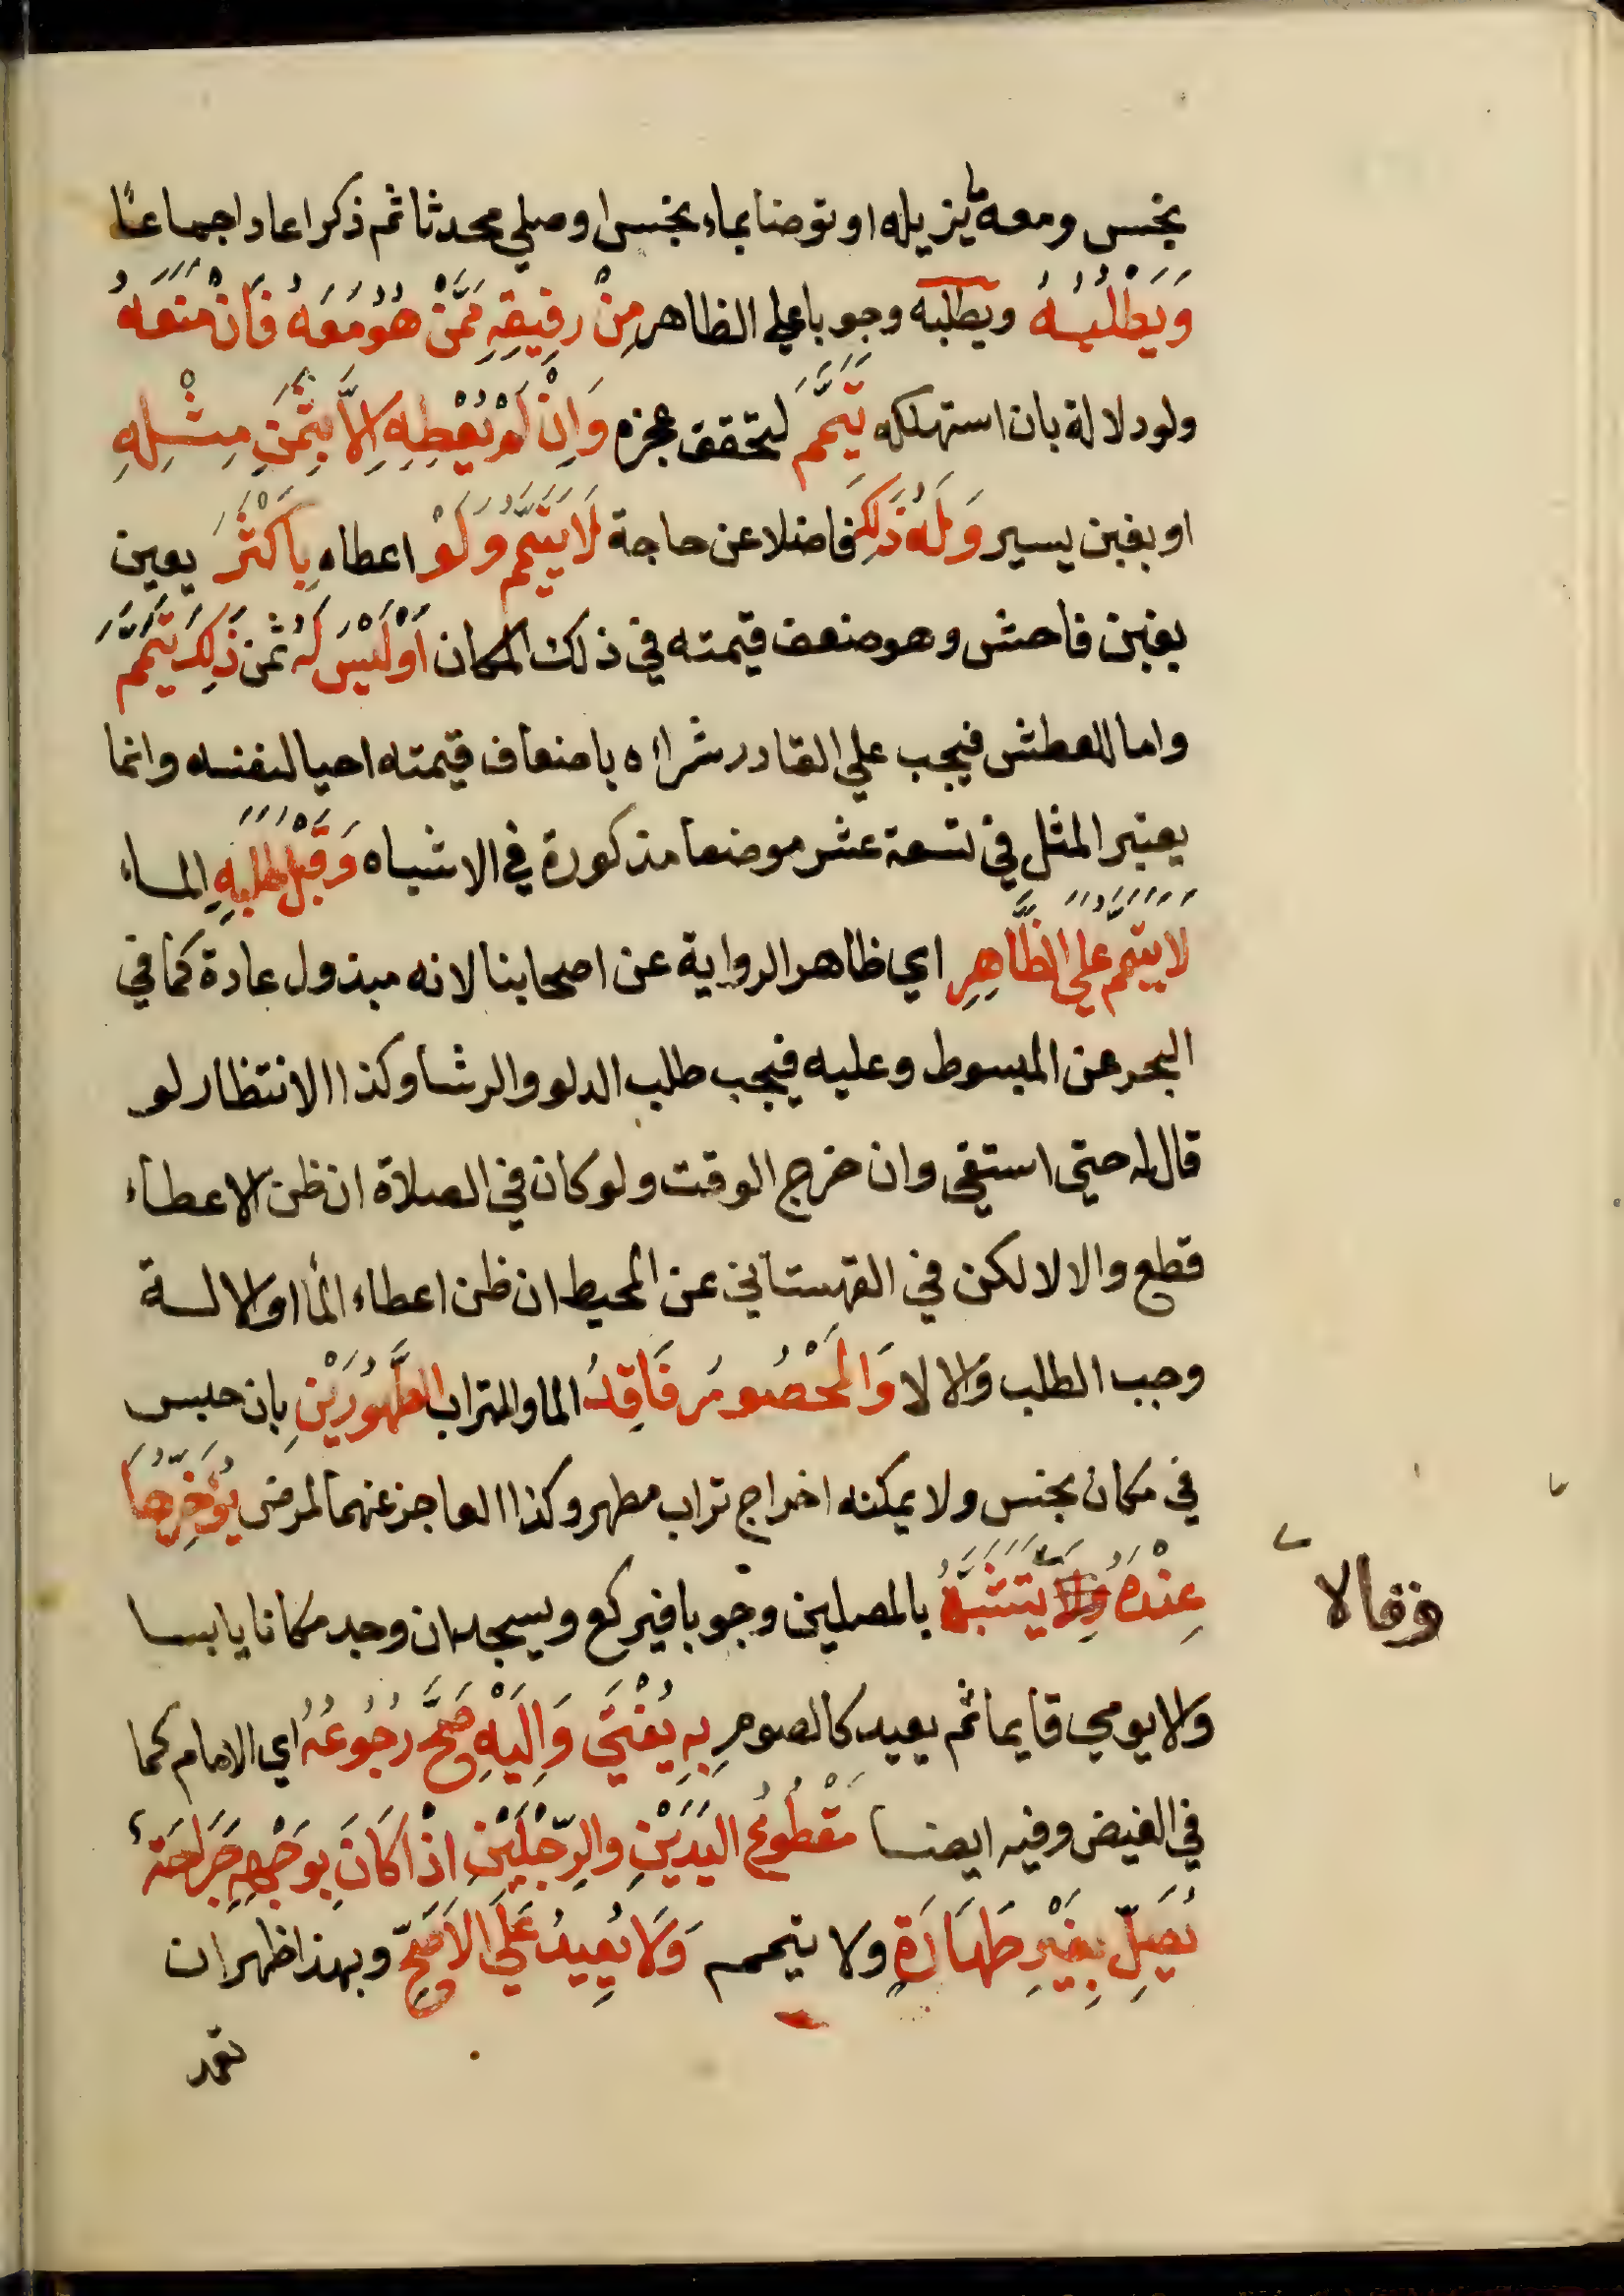 بنجس ومعه ما يزيله او توضا بماء نجس او صلي محدثا ثم ذكر اعاد اجماعًا
وَيَطْلُبُهُ ويطلبه وجوبا علي الظاهر مِنْ رَفِيقِهِ مِمَّنْ هُوَ مَعَهُ فَاِنْ مَنَعَهُ
ولو دلالة بان استهلكه تَيَمَّمَ لتحقق عجزه وَاِنْ لَمْ يُعْطِهِ اِلاَّ بِثَمَنِ مِثْلِهِ
او بغبن يسير وَلَهُ ذَلِكَ فاضلا عن حاجة لَا يَتَيَمَّمُ وَلَوْ اعطاه بِاَكْثَرَ يعين
بغبن فاحش وهو ضعف قيمته في ذلك المكان اَوْ لَيْسَ لَهُ ثَمَنُ ذَلِكَ تَيَمَّمَ
واما للعطش فيجب علي القادر شراؤه باضعاف قيمته احيا لنفسه وانما
يعتبر المثل في تسعة عشر موضعا مذكورة في الاشباه وَقَبْلَ طَلَبِهِ الماء
لَا يَتَيَمَّمُ عَلَي الظَّاهِرِ اي ظاهر الرواية عن اصحابنا لانه مبذول عادة كما في
البحر عن المبسوط وعليه فيجب طلب الدلو والرشا وكذا الانتظار لو
قال له حتي استقي وان خرج الوقت ولو كان في الصلاة ان ظن الاعطاء
قطع والا لا لكن في القهستاني عن المحيط ان ظن اعطاء الما او الالة
وجب الطلب والا لا وَالمَحْصُورُ فَاقِدُ الما والتراب الطَّهُورَيْنِ بان حبس
في مكان نجس ولا يمكنه اخراج تراب مطهر وكذا العاجز عنهما لمرض يُؤَخِّرُهَا
عِنْدَهُ وَلَا يَتَشَبَّهُ بالمصلين وجوبا فيركع ويسجد ان وجد مكانا يابسا
وقالا
والا يومي قايما ثم يعيد كالصوم بِهِ يُفْتَي وَاِلَيْهِ صَحَّ رُجُوعُهُ اي الامام كما
في الفيض وفيه ايضا مَقْطُوعُ اليَدَيْنِ وَالرِّجْلَيْنِ اِذَا كَانَ بِوَجْهِهِ جَرَاحَةٌ
يُصَلِّ بِغَيْرِ طَهَارَةٍ ولا يتيمم وَلَا يُعِيدُ عَلَي الاَصَحِّ وبهذا ظهر ان
تعمد